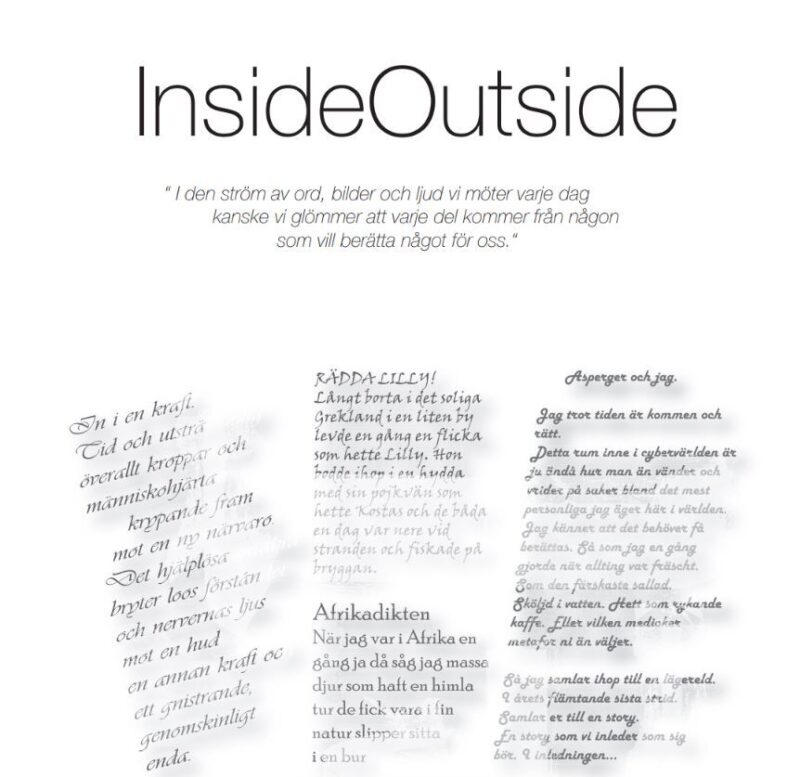 InsideOutside
“ I den ström av ord, bilder och ljud vi möter varje dag
kanske vi glömmer att varje del kommer från någon
som vill berätta något för oss.“
In i en kraft.
Tid och utsträ
överallt kroppar och
människohjärta
krypande fram
mot en ny närvaro.
Det hjälplösa
bryter loos förstån
och nervernas ljus
mot en hud
en annan kraft oc
ett gnistrande,
genomskinligt
enda.
RÄDDA LILLY!
Långt borta i det soliga
Grekland i en liten by
levde en gång en flicka
som hette Lilly. Hon
bodde ihop i en hydda
med sin pojkvän som
hette Kostas och de båda
en dag var nere vid
stranden och fiskade på
bryggan.
Afrikadikten
När jag var i Afrika en
gång ja då såg jag massa
djur som haft en himla
tur de fick vara i fin
natur slipper sitta
i en bur
Asperger och jag.
Jag tror tiden är kommen och
rätt.
Detta rum inne i cybervärlden är
ju ändå hur man än vänder och
vrider på saker bland det mest
personliga jag äger här i världen.
Jag känner att det behöver få
berättas. Så som jag en gång
gjorde när allting var fräscht.
Som den färskaste sallad.
Sköljd i vatten. Hett som rykande
kaffe. Eller vilken medioker
metafor ni än väljer.
Så jag samlar ihop till en lägereld.
I årets flämtande sista strid.
Samlar er till en story.
En story som vi inleder som sig
bör. I inledningen...